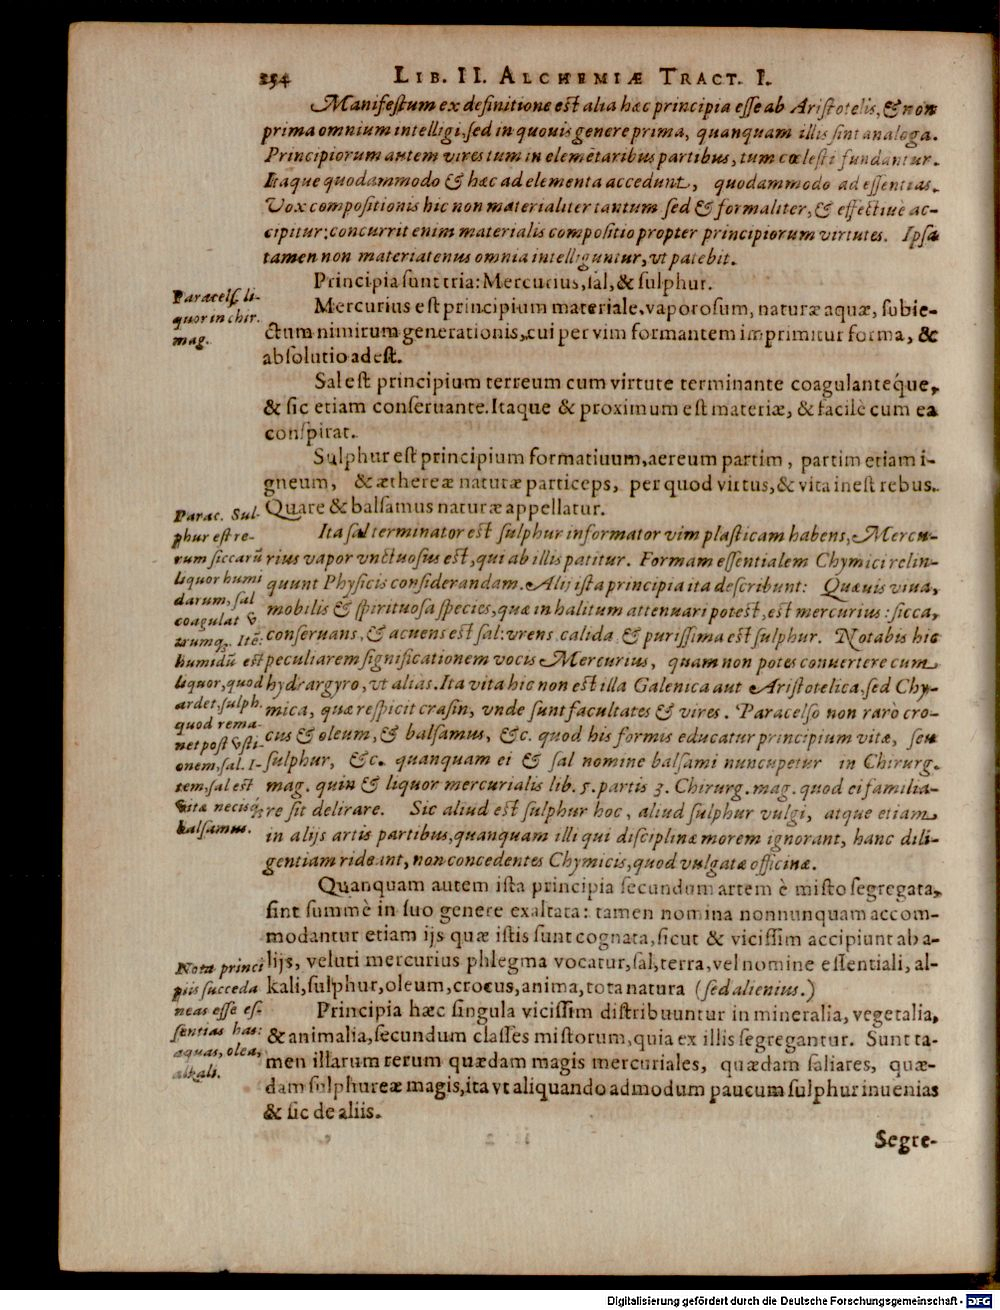 254 LIB. II. ALCHEMIÆ TRACT. I.
Manifestum ex definitione est alia hæc principia esse ab Aristotelis, & non
prima omnium intelligi, sed in quouis genere prima, quanquam illis sint analoga.
Principiorum autem vires tum in elemētaribus partibus, tum cœlesti fundantur.
Itaque quodammodo & hæc ad elementa accedunt, quodammodo ad essentias.
Vox compositionis hic non materialiter tantum sed & formaliter, & effectiuè ac-
cipitur: concurrit enim materialis compositio propter principiorum virtutes. Ipsa
tamen non materiatenus omnia intelliguntur, vt patebit.
Principia sunt tria: Mercurius, sal, & sulphur.
Paracels. li-
quor in chir.
mag.
Mercurius est principium materiale, vaporosum, naturæ aquæ, subie-
ctum nimirum generationis, cui per vim formantem imprimitur forma, &
absolutio adest.
Sal est principium terreum cum virtute terminante coagulanteque,
& sic etiam conseruante. Itaque & proximum est materiæ, & facilè cum ea
conspirat.
Sulphur est principium formatiuum, aereum partim, partim etiam i-
gneum, & æthereæ naturæ particeps, per quod virtus, & vita inest rebus.
Quare & balsamus naturæ appellatur.
Parac. Sul-
phur est re-
rum siccarū
liquor humi
darum, sal
coagulat v-
trumq;. Itē:
humidū est
liquor, quod
ardet, sulph.
quod rema-
net post vsti-
onem, sal. I-
tem, sal est
vitæ necisq;
balsamus.
Ita sal terminator est sulphur informator vim plasticam habens, Mercu-
rius vapor vnctuosus est, qui ab illis patitur. Formam essentialem Chymici relin-
quunt Physicis considerandam. Alij ista principia ita describunt: Quæuis viua,
mobilis & spirituosa species, quæ in halitum attenuari potest, est mercurius: sicca,
conseruans, & acuens est sal: vrens calida & purissima est sulphur. Notabis hic
peculiarem significationem vocis Mercurius, quam non potes conuertere cum
hydrargyro, vt aliàs. Ita vita hic non est illa Galenica aut Aristotelica, sed Chy-
mica, quæ respicit crasin, vnde sunt facultates & vires. Paracelso non rarò cro-
cus & oleum, & balsamus, &c. quod his formis educatur principium vitæ, seu
sulphur, &c. quanquam ei & sal nomine balsami nuncupetur in Chirurg.
mag. quin & liquor mercurialis lib. 5. partis 3. Chirurg. mag. quod ei familia-
re sit delirare. Sic aliud est sulphur hoc, aliud sulphur vulgi, atque etiam
in alijs artis partibus, quanquam illi qui disciplinæ morem ignorant, hanc dili-
gentiam rideant, non concedentes Chymicis, quod vulgatæ officinæ.
Quanquam autem ista principia secundum artem è misto segregata,
sint summè in suo genere exaltata: tamen nomina nonnunquam accom-
modantur etiam ijs quæ istis sunt cognata, sicut & vicissim accipiunt ab a-
lijs, veluti mercurius phlegma vocatur, sal, terra, vel nomine essentiali, al-
kali, sulphur, oleum, crocus, anima, tota natura (sed alienius.)
Nota princi
piis succeda
neas esse es-
sentias has:
aquas, olea,
alkali.
Principia hæc singula vicissim distribuuntur in mineralia, vegetalia,
& animalia, secundum classes mistorum, quia ex illis segregantur. Sunt ta-
men illarum rerum quædam magis mercuriales, quædam saliares, quæ-
dam sulphureæ magis, ita vt aliquando admodum paucum sulphur inuenias
& sic de aliis.
Segre-
Digitalisierung gefördert durch die Deutsche Forschungsgemeinschaft - DFG